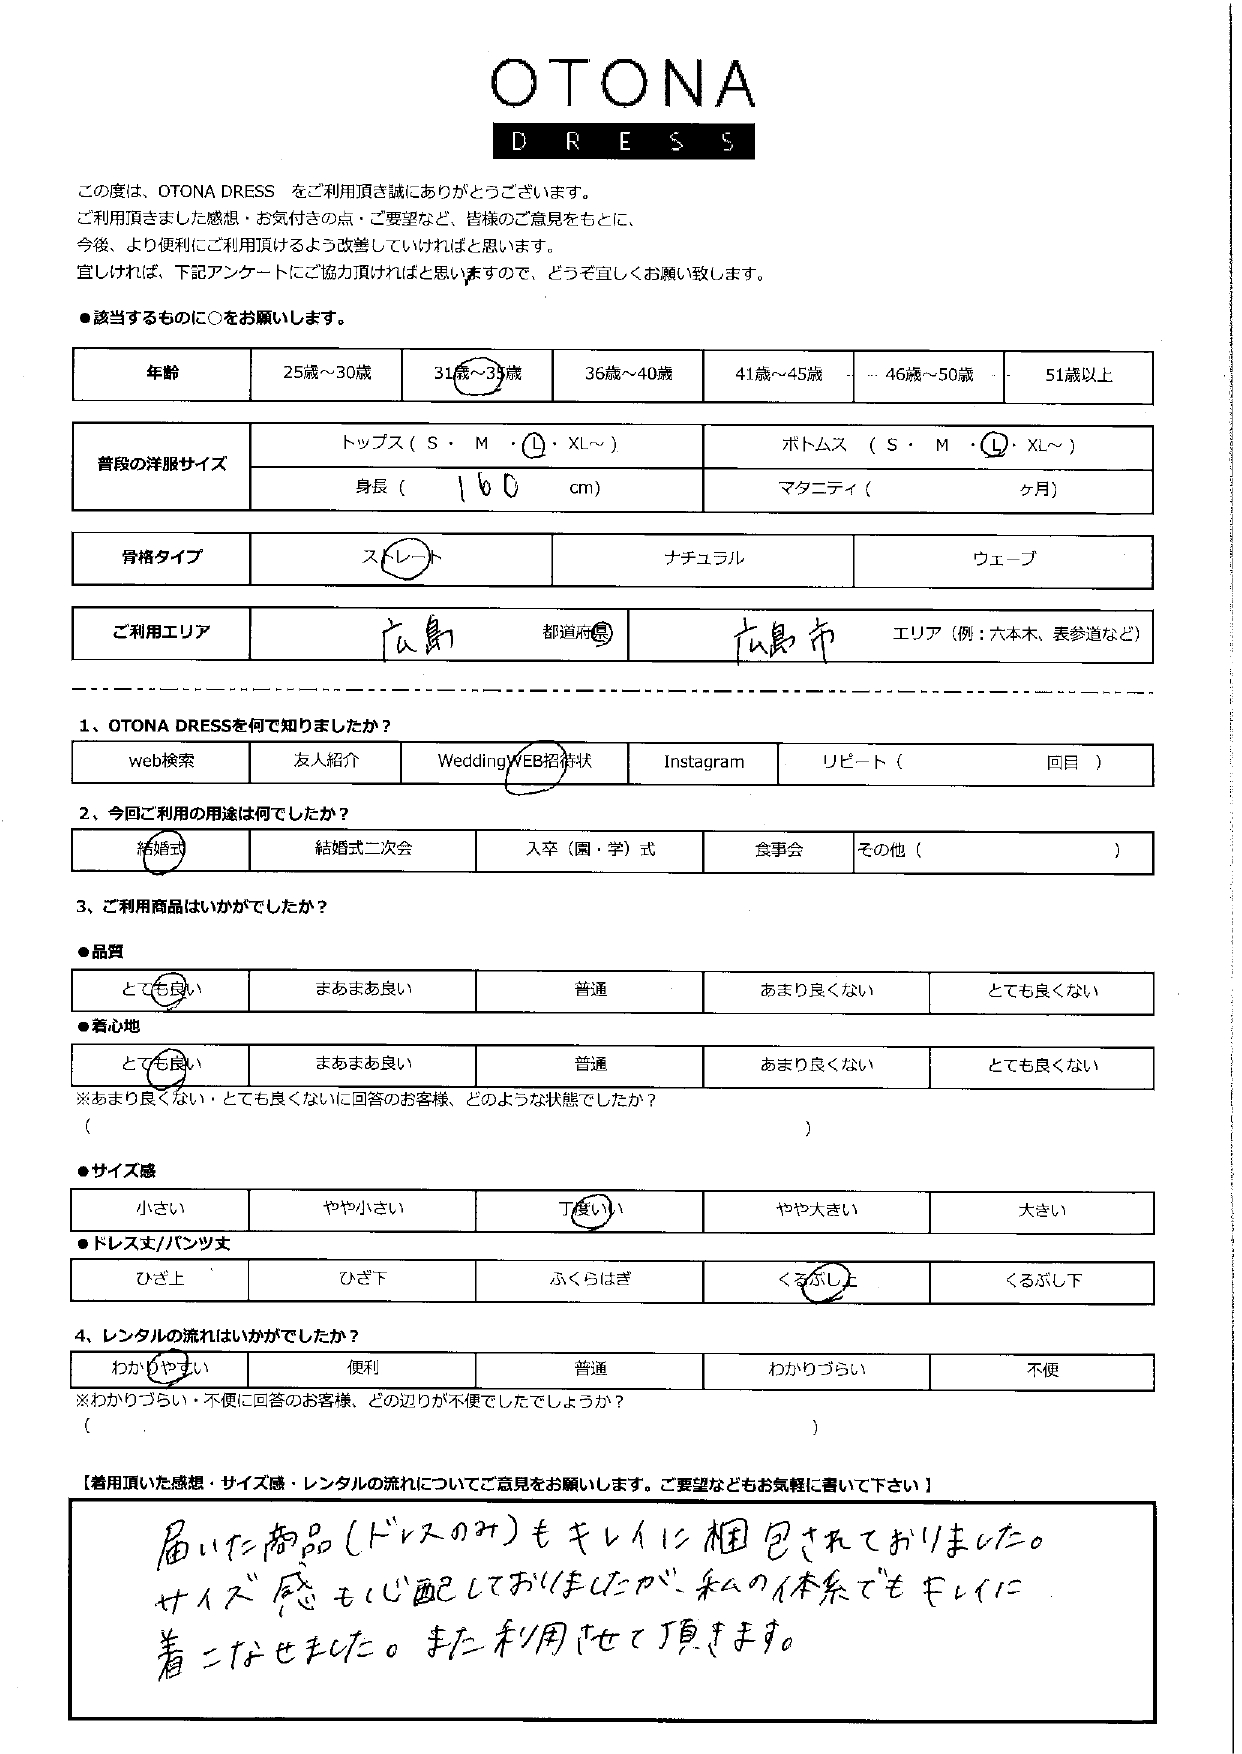 OTONA
DRESS
この度は、OTONA DRESS　をご利用頂き誠にありがとうございます。
ご利用頂きました感想・お気付きの点・ご要望など、皆様のご意見をもとに、
今後、より便利にご利用頂けるよう改善していければと思います。
宜しければ、下記アンケートにご協力頂ければと思いますので、どうぞ宜しくお願い致します。
●該当するものに○をお願いします。
年齢 25歳～30歳 31歳～35歳 36歳～40歳 41歳～45歳 46歳～50歳 51歳以上
普段の洋服サイズ トップス ( S ・ M ・ L ・ XL～ ) ボトムス ( S ・ M ・ L ・ XL～ )
身長 ( 160 cm) マタニティ ( ヶ月)
骨格タイプ ストレート ナチュラル ウェーブ
ご利用エリア 広島 都道府県 広島市 エリア（例：六本木、表参道など）
1、OTONA DRESSを何で知りましたか？
web検索 友人紹介 WeddingWEB招待状 Instagram リピート（ 回目 ）
2、今回ご利用の用途は何でしたか？
結婚式 結婚式二次会 入卒（園・学）式 食事会 その他（ ）
3、ご利用商品はいかがでしたか？
●品質
とても良い まあまあ良い 普通 あまり良くない とても良くない
●着心地
とても良い まあまあ良い 普通 あまり良くない とても良くない
※あまり良くない・とても良くないに回答のお客様、どのような状態でしたか？
（ ）
●サイズ感
小さい やや小さい 丁度いい やや大きい 大きい
●ドレス丈/パンツ丈
ひざ上 ひざ下 ふくらはぎ くるぶし上 くるぶし下
4、レンタルの流れはいかがでしたか？
わかりやすい 便利 普通 わかりづらい 不便
※わかりづらい・不便に回答のお客様、どの辺りが不便でしたでしょうか？
（ ）
【着用頂いた感想・サイズ感・レンタルの流れについてご意見をお願いします。ご要望などもお気軽に書いて下さい 】
届いた商品(ドレスのみ)もキレイに梱包されておりました。
サイズ感も心配しておりましたが、私の体系でもキレイに
着こなせました。また利用させて頂きます。